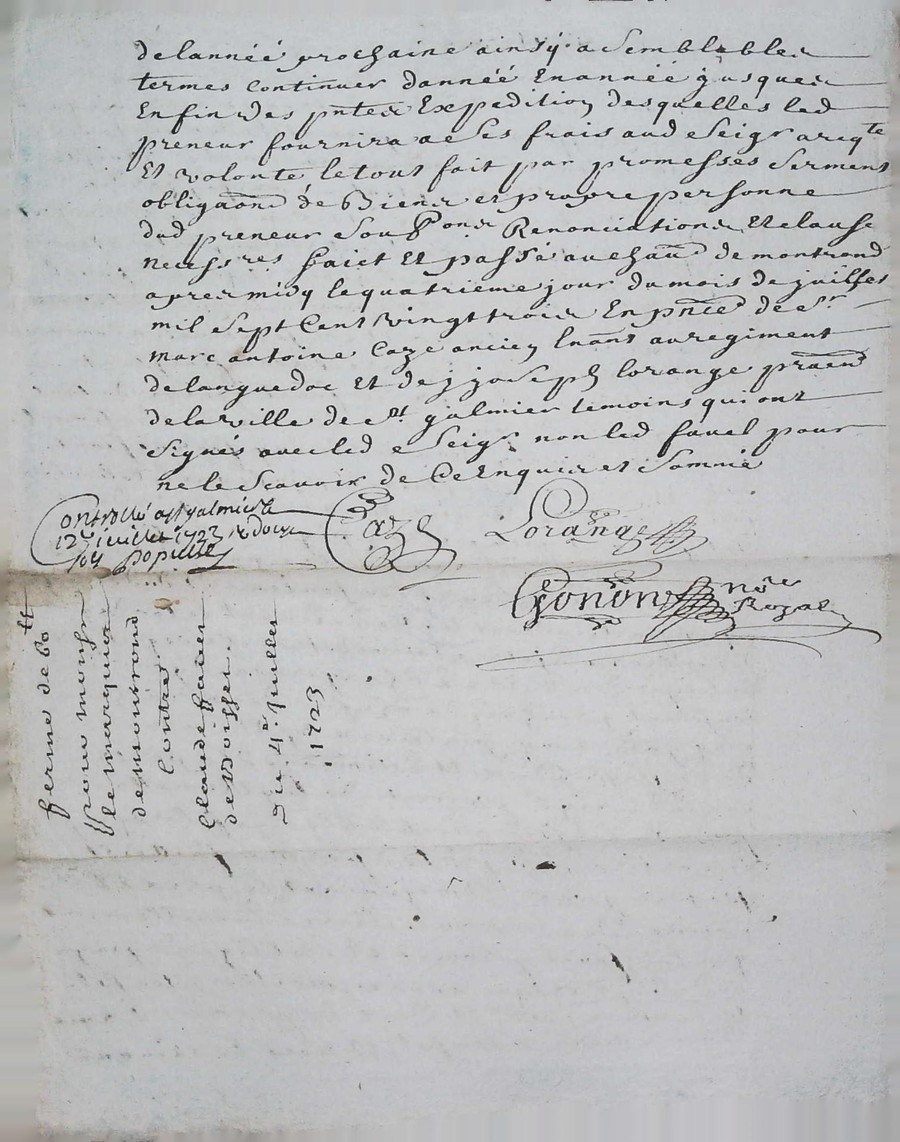 delannéé prochaine ainsÿ a semblables
termes continuer dannéé en année jusques
Enfin des pntes Expedition desquelles led
preneur fournira a ses frais aud seigr a reqte
Et volonté le tout fait par promesses serment
obligaõn de Biens et propre personne
dud preneur sous Renonciations et clause
necessres faict Et passé au chau de montrond
apres midy le quatrieme jour du mois de juillet
mil sept Cent vingt trois En pnce de sr
marc antoine Caze ancien lnant au regiment
de languedoc Et de joseph lorange
de la ville de st galmier temoins qui ont
signés avec led seigr non led favel pour
ne le scavoir de ce Enquis et sommé
Controllé a st galmier le
12e juillet 1723
populle
Caze
Lorange
Gonon nore
Royal
ferme de 60 tt
pour monsr
le marquis
de montrond
Contre
Claude
de
du 4e juillet
1723